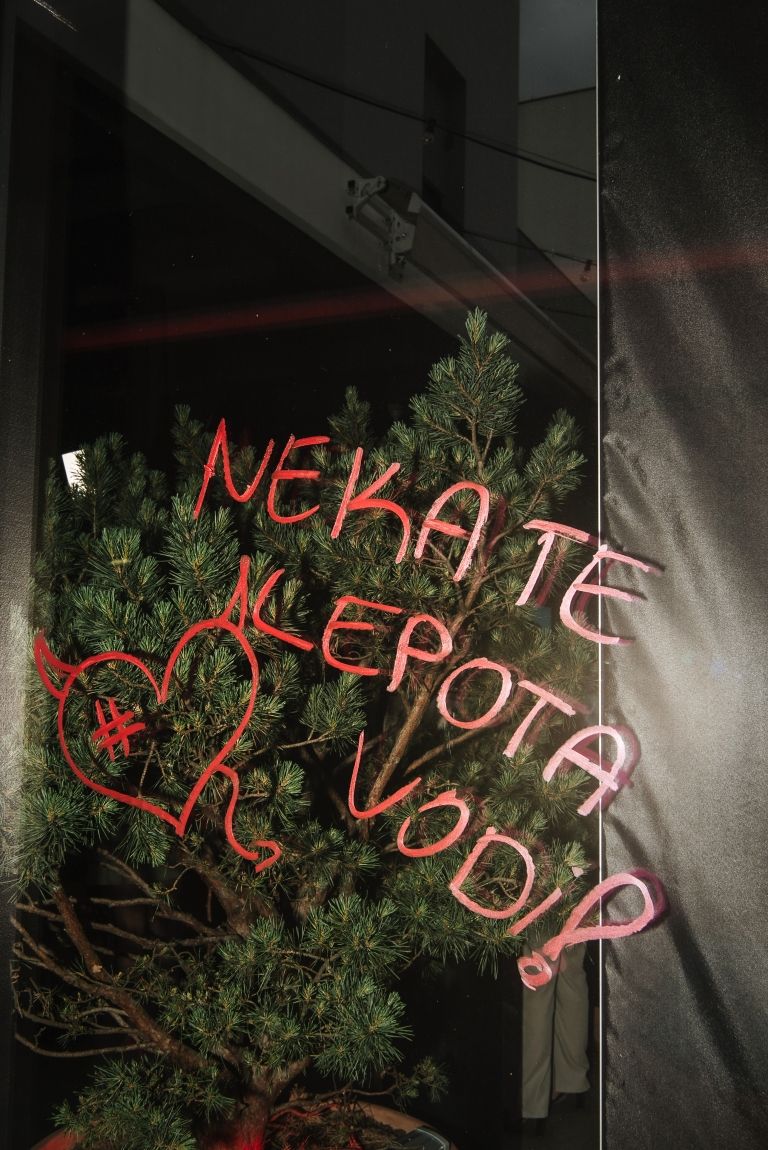 NEKA TE
LEPOTA
#
VODI!